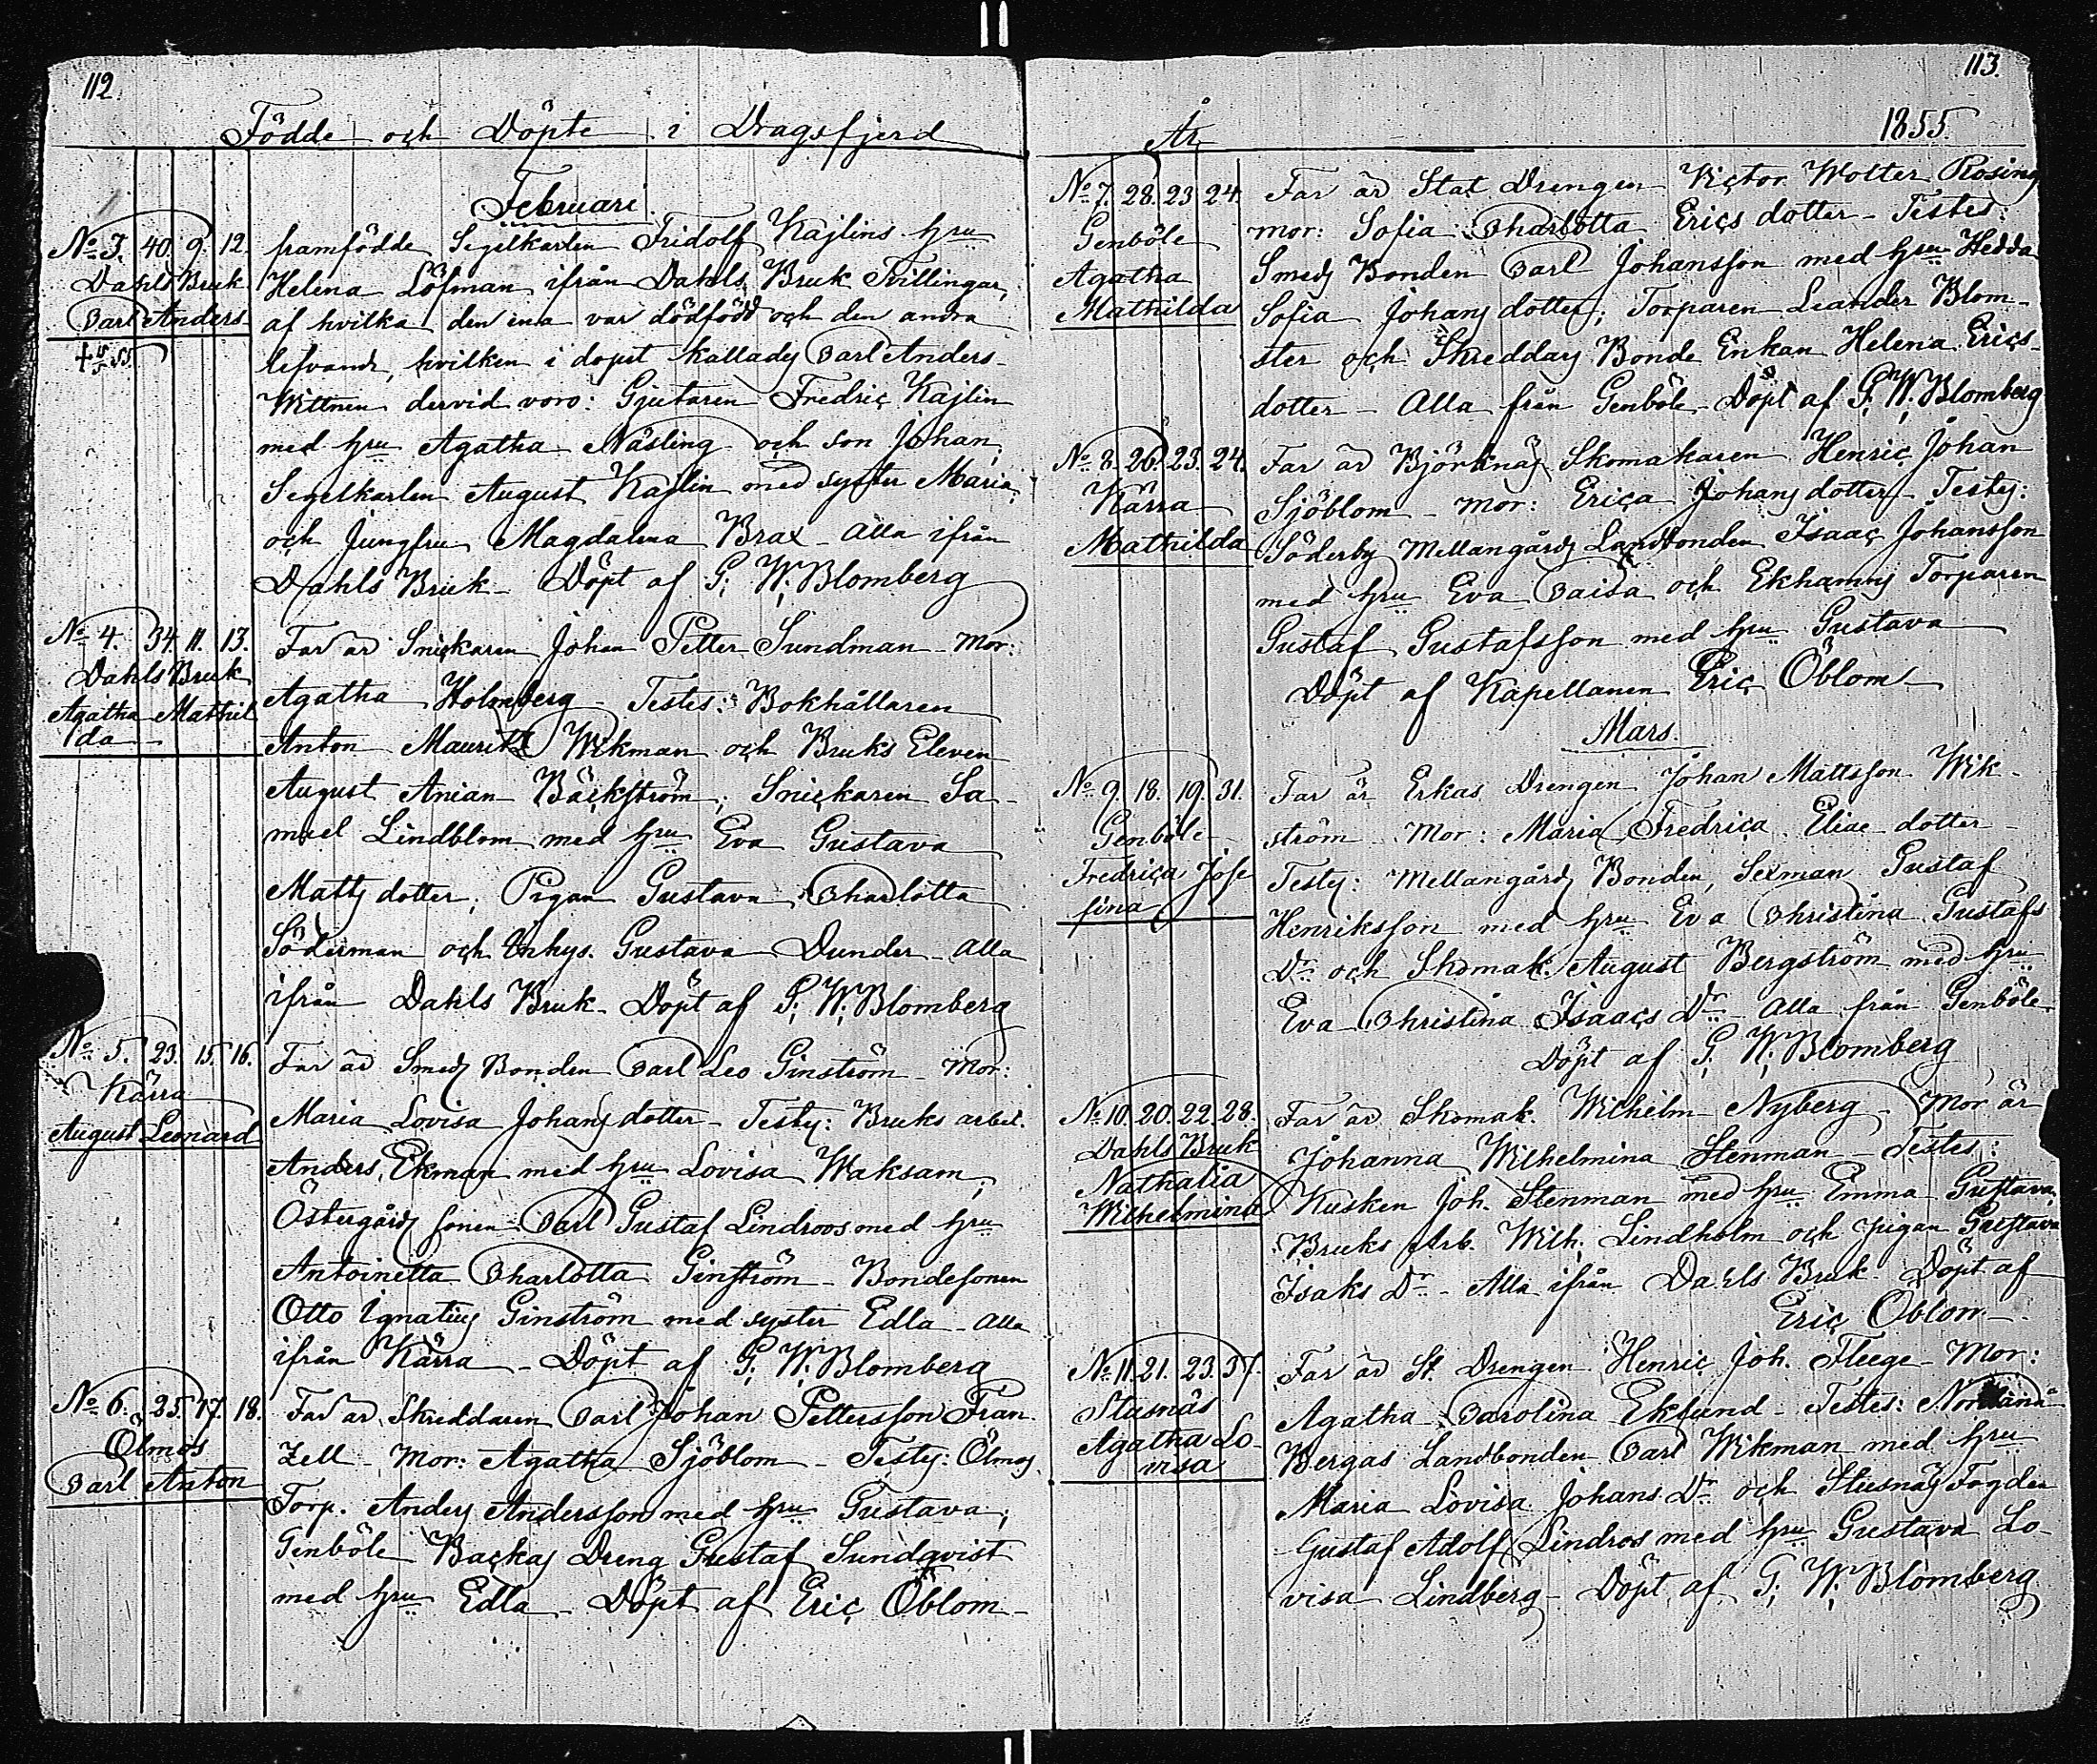 112.
Födde och Döpte i Dragsfjerd
Februari.
No 3. 40. 9. 12.
Dahls Bruk
Carl Anders
framfödde Segelkarlen Fridolf Kajlins hru
Helena Löfman ifrån Dahls Bruk Tvillingar,
af hvilka den ena var dödfödd och den andra
lefvande, hvilken i dopet kallades Carl Anders-
Wittnen dervid voro: Gjutaren Fredric Kajlin
med hru Agatha Näsling och son Johan,
Segelkarlen August Kajlin med syster Maria;
och Jungfru Magdalena Brax - Alla ifrån
Dahls Bruk - Döpt af G. W. Blomberg
No 4. 34. 11. 13.
Dahls Bruk
Agatha Mathil
da
Far är Snickaren Johan Petter Sundman - Mor:
Agatha Holmberg - Testes: Bokhållaren
Anton Mauritz Wikman och Bruks Eleven
August Anian Bäckström; Snickaren Sa-
muel Lindblom med hru Eva Gustava
Matts dotter; Pigan Gustava Charlotta
Söderman och Inhys. Gustava Dunder - Alla
ifrån Dahls Bruk - Döpt af G. W. Blomberg
No 5. 23. 15. 16.
Kärra
August Leonard
Far är Smeds Bonden Carl Leo Ginström - Mor:
Maria Lovisa Johans dotter - Testes: Bruks arbet.
Anders Ekman med hru Lovisa Waksam;
Östergårds sonen Carl Gustaf Lindroos med hru
Antoinetta Charlotta Ginström - Bondesonen
Otto Ignatius Ginström med syster Edla - Alla
ifrån Kärra - Döpt af G. W. Blomberg
No 6. 25. 17. 18.
Ölmos
Carl Anton
Far är Skreddaren Carl Johan Pettersson Fran
zell - Mor: Agatha Sjöblom - Testes: Ölmos
Torp. Anders Andersson med hru Gustava;
Genböle Backas Dreng Gustaf Sundqvist
med hru Edla - Döpt af Eric Öblom -
113.
År 1855.
No 7. 28. 23 24.
Genböle
Agatha
Mathilda
Far är Stat Drengen Victor Wolter Rosing
mor: Sofia Charlotta Erics dotter - Testes:
Smeds Bonden Carl Johansson med hru Hedda
Sofia Johans dotter; Torparen Leander Blom-
ster och Skreddars Bonde Enkan Helena Erics-
dotter - Alla från Genböle - Döpt af G. W. Blomberg
No 8. 26. 23. 24.
Kärra
Mathilda
Far är Björknäs Skomakaren Henric Johan
Sjöblom - Mor: Erica Johans dotter - Testes:
Söderby Mellangårds Landbonden Isaac Johansson
med hru Eva Caisa och Ekhamns Torparen
Gustaf Gustafsson med hru Gustava
Döpt af Kapellanen Eric Öblom
Mars.
No 9. 18. 19. 31.
Genböle
Fredrica Jose
fina
Far är Erkas Drengen Johan Mattsson Wik-
ström Mor: Maria Fredrica Eliae dotter -
Testes: Mellangårds Bonden, Sexman Gustaf
Henriksson med hru Eva Christina Gustafs
Dr och Skomak. August Bergström med hru
Eva Christina Isaacs Dr - Alla från Genböle
Döpt af G. W. Blomberg
No 10. 20. 22. 28.
Dahls Bruk
Nathalia
Wilhelmina
Far är Skomak. Wilhelm Nyberg - Mor är
Johanna Wilhelmina Stenman - Testes:
Kusken Joh. Stenman med hru Emma Gustava,
Bruks Arb. Wilh. Lindholm och pigan Gustava
Isaks Dr - Alla ifrån Dahls Bruk - Döpt af
Eric Öblom -
No 11. 21. 23. 37.
Stusnäs
Agatha Lo-
visa
Far är St. Drengen Henric Joh. Fleege - Mor:
Agatha Carolina Eklund - Testes:
Bergas Landbonden Carl Wikman med hru
Maria Lovisa Johans Dr och Stusnäs Fogden
Gustaf Adolf Lindros med hru Gustava Lo-
visa Lindberg - Döpt af G. W. Blomberg